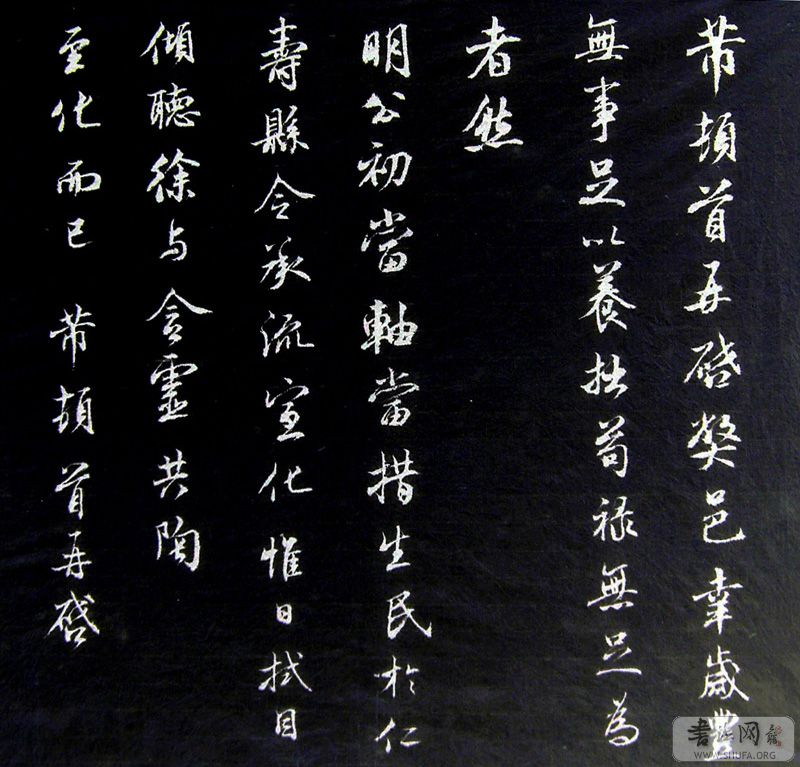 芾頓首再啓弊邑幸歲豐
無事足以養拙苟禄無足為
者然
明公初當軸當措生民於仁
壽縣令承流宣化惟日拭目
傾聽徐与含靈共陶
至化而已 芾頓首再啓
書法网
WWW.SHUFA.ORG